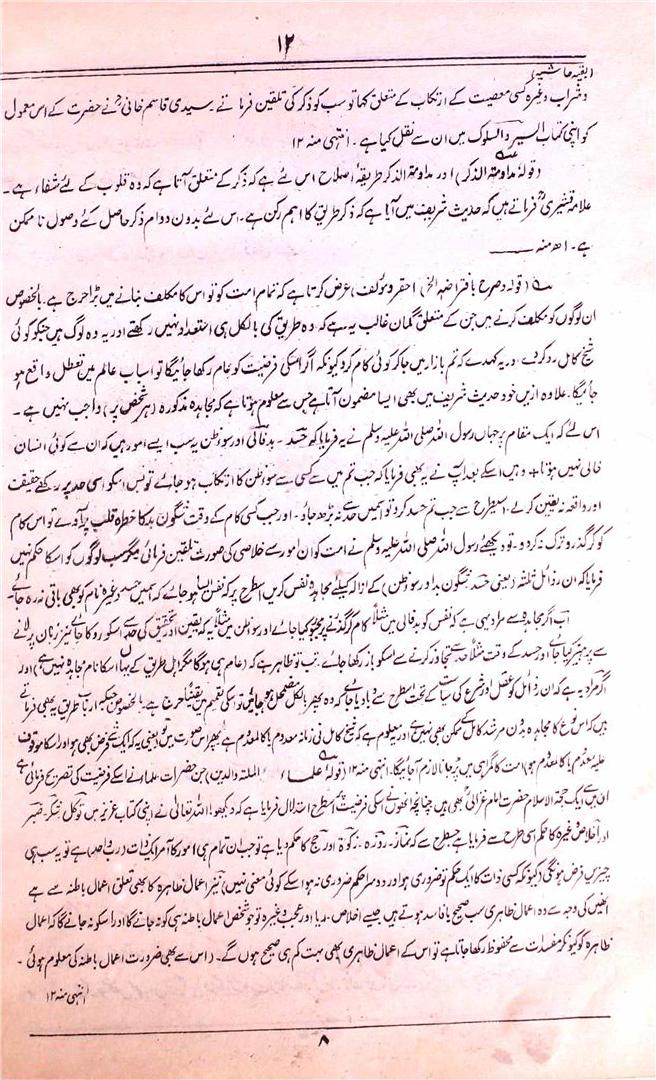 ۱۲
(بقیہ حاشیہ)
وشراب وغیرہ کسی معصیت کے ارتکاب کے متعلق کہا تو سب کو ذکر کی تلقین فرماتے۔ سیدی قاسم خانی رح نے حضرت کے اس معمول
کو اپنی کتاب السیر والسلوک میں ان سے نقل کیا ہے۔ انتہی منہ ۱۲
(قولہ مداومۃ الذکر) اور مداومۃ الذکر طریقۂ اصلاح اس لئے ہے کہ ذکر کے متعلق آتا ہے کہ وہ قلوب کے لئے شفاء ہے۔
علامہ قشیری رح فرماتے ہیں کہ حدیث شریف میں آیا ہے کہ ذکر طریق کا اہم رکن ہے۔ اس لئے بدون دوام ذکر حاصل کئے وصول ناممکن
ہے۔ اھ منہ
(قولہ وصرح بافتراضہ الخ) احقر (مؤلف) عرض کرتا ہے کہ تمام امت کو تو اس کا مکلف بنانے میں بڑا حرج ہے۔ بالخصوص
ان لوگوں کو مکلف کرنے میں جن کے متعلق گمان غالب یہ ہے کہ وہ طریق کی بالکل ہی استعداد نہیں رکھتے اور یہ وہ لوگ ہیں جنکو کوئی
شیخ کامل رد کردے اور یہ کہدے کہ تم بازار میں جا کر کوئی کام کرو کیونکہ اگر اسکی فرضیت کو عام رکھا جائیگا تو اسباب عالم میں تعطل واقع ہو
جائیگا۔ علاوہ ازیں خود حدیث شریف میں بھی ایسا مضمون آتا ہے جس سے معلوم ہوتا ہے کہ مجاہدہ مذکورہ (ہر شخص پر) واجب نہیں ہے۔
اس لئے کہ ایک مقام پر جہاں رسول اللہ صلی اللہ علیہ وسلم نے یہ فرمایا کہ حسد۔ بدفالی اور سوء ظن یہ سب ایسے امور ہیں کہ ان سے کوئی انسان
خالی نہیں ہوتا + وہیں اسکے بعد آپ نے یہ بھی فرمایا کہ جب تم میں سے کسی سے سوء ظن کا ارتکاب ہو جائے تو بس اسکو اسی حد پر رکھے حقیقت
اور واقعہ نہ یقین کرلے، اسی طرح سے جب تم حسد کرو تو اسمیں حد سے نہ بڑھ جاؤ۔ اور جب کسی کام کے وقت شگون بد کا خطرہ قلب پر آئے تو اس کام
کو کر گذرو ترک نہ کردو۔ تو دیکھئے رسول اللہ صلی اللہ علیہ وسلم نے امت کو ان امور سے خلاصی کی صورت تلقین فرمائی مگر سب لوگوں کو اسکا حکم نہیں
فرمایا کہ ان رذائل ثلثہ (یعنی حسد شگون بد اور سوء ظن) کے ازالہ کیلئے مجاہدہ نفس کریں اسطرح پر کہ نفس ایسا ہو جائے کہ اسمیں حسد وغیرہ نام کو بھی باقی نہ رہ جائے۔
اب اگر مجاہدہ سے مراد یہی ہے کہ نفس کو بدفالی میں مثلاً کام کر گذرنے پر مجبور کیا جائے اور سوء ظن میں مثلاً یہ کہ یقین اور تحقیق کی حد سے اسکو روکا جائے نیز زبان پر لانے
سے پرہیز کیا جائے اور حسد کے وقت مثلاً حد سے تجاوز کرنے سے اسکو باز رکھا جائے۔ تب تو ظاہر ہے کہ (عام ہی ہوگا مگر اہل طریق کے یہاں اسکا نام مجاہدہ نہیں ہے) اور
اگر مراد یہ ہے کہ ان رذائل کو عقل اور شرع کی سیاست کے تحت اسطرح سے دبا دیا جائے کہ وہ پھر بالکل مضمحل ہو جائیں تو اسکی تعمیم میں یقیناً حرج ہے۔ بالخصوص جبکہ ارباب طریق یہ بھی فرماتے
ہیں کہ اس نوع کا مجاہدہ بدون مرشد کامل کے ممکن بھی نہیں ہے اور معلوم ہے کہ شیخ کامل فی زمانہ معدوم یا کالمعدوم ہے پھر اس صورت میں تو یعنی یہ کہ ایک شے فرض بھی ہو اور اسکا موقوف
علیہ معدوم یا کالمعدوم ہو) امت کا گمراہی میں پڑجانا لازم آجائیگا۔ انتہی منہ ۱۲ (قولہ علماء الملتہ والدین) جن حضرات علماء نے اسکے فرضیت کی تصریح فرمائی ہے
ان میں ایک حجۃ الاسلام حضرت امام غزالی رح بھی ہیں چنانچہ انھوں نے اسکی فرضیت پر اسطرح استدلال فرمایا ہے کہ دیکھو! اللہ تعالٰی نے اپنی کتاب عزیز میں توکل شکر۔ صبر
اور اخلاص وغیرہ کا حکم اسی طرح سے فرمایا ہے جسطرح سے کہ نماز۔ روزہ۔ زکوٰۃ اور حج کا حکم دیا ہے تو جب ان تمام ہی امور کا آمر ایک ذات (رب واحد) ہے تو یہ سب ہی
چیزیں فرض ہونگی (کیونکہ کسی ذات کا ایک حکم تو ضروری ہو اور دوسرا حکم ضروری نہ ہو اسکے کوئی معنی نہیں) نیز اعمال ظاہرہ کا بھی تعلق اعمال باطنہ سے ہے
انھیں کی وجہ سے وہ اعمال ظاہری سب صحیح یا فاسد ہوتے ہیں جیسے اخلاص۔ ریا اور عجب وغیرہ تو جو شخص اعمال باطنہ ہی کو نہ جانے گا اور اسکو نہ جانے گا کہ اعمال
ظاہرہ کو کیونکر مفسدات سے محفوظ رکھا جاتا ہے تو اس کے اعمال ظاہری بھی بہت کم ہی صحیح ہوں گے۔ (اس سے بھی ضرورت اعمال باطنہ کی معلوم ہوئی۔
انتہی منہ ۱۲
۸